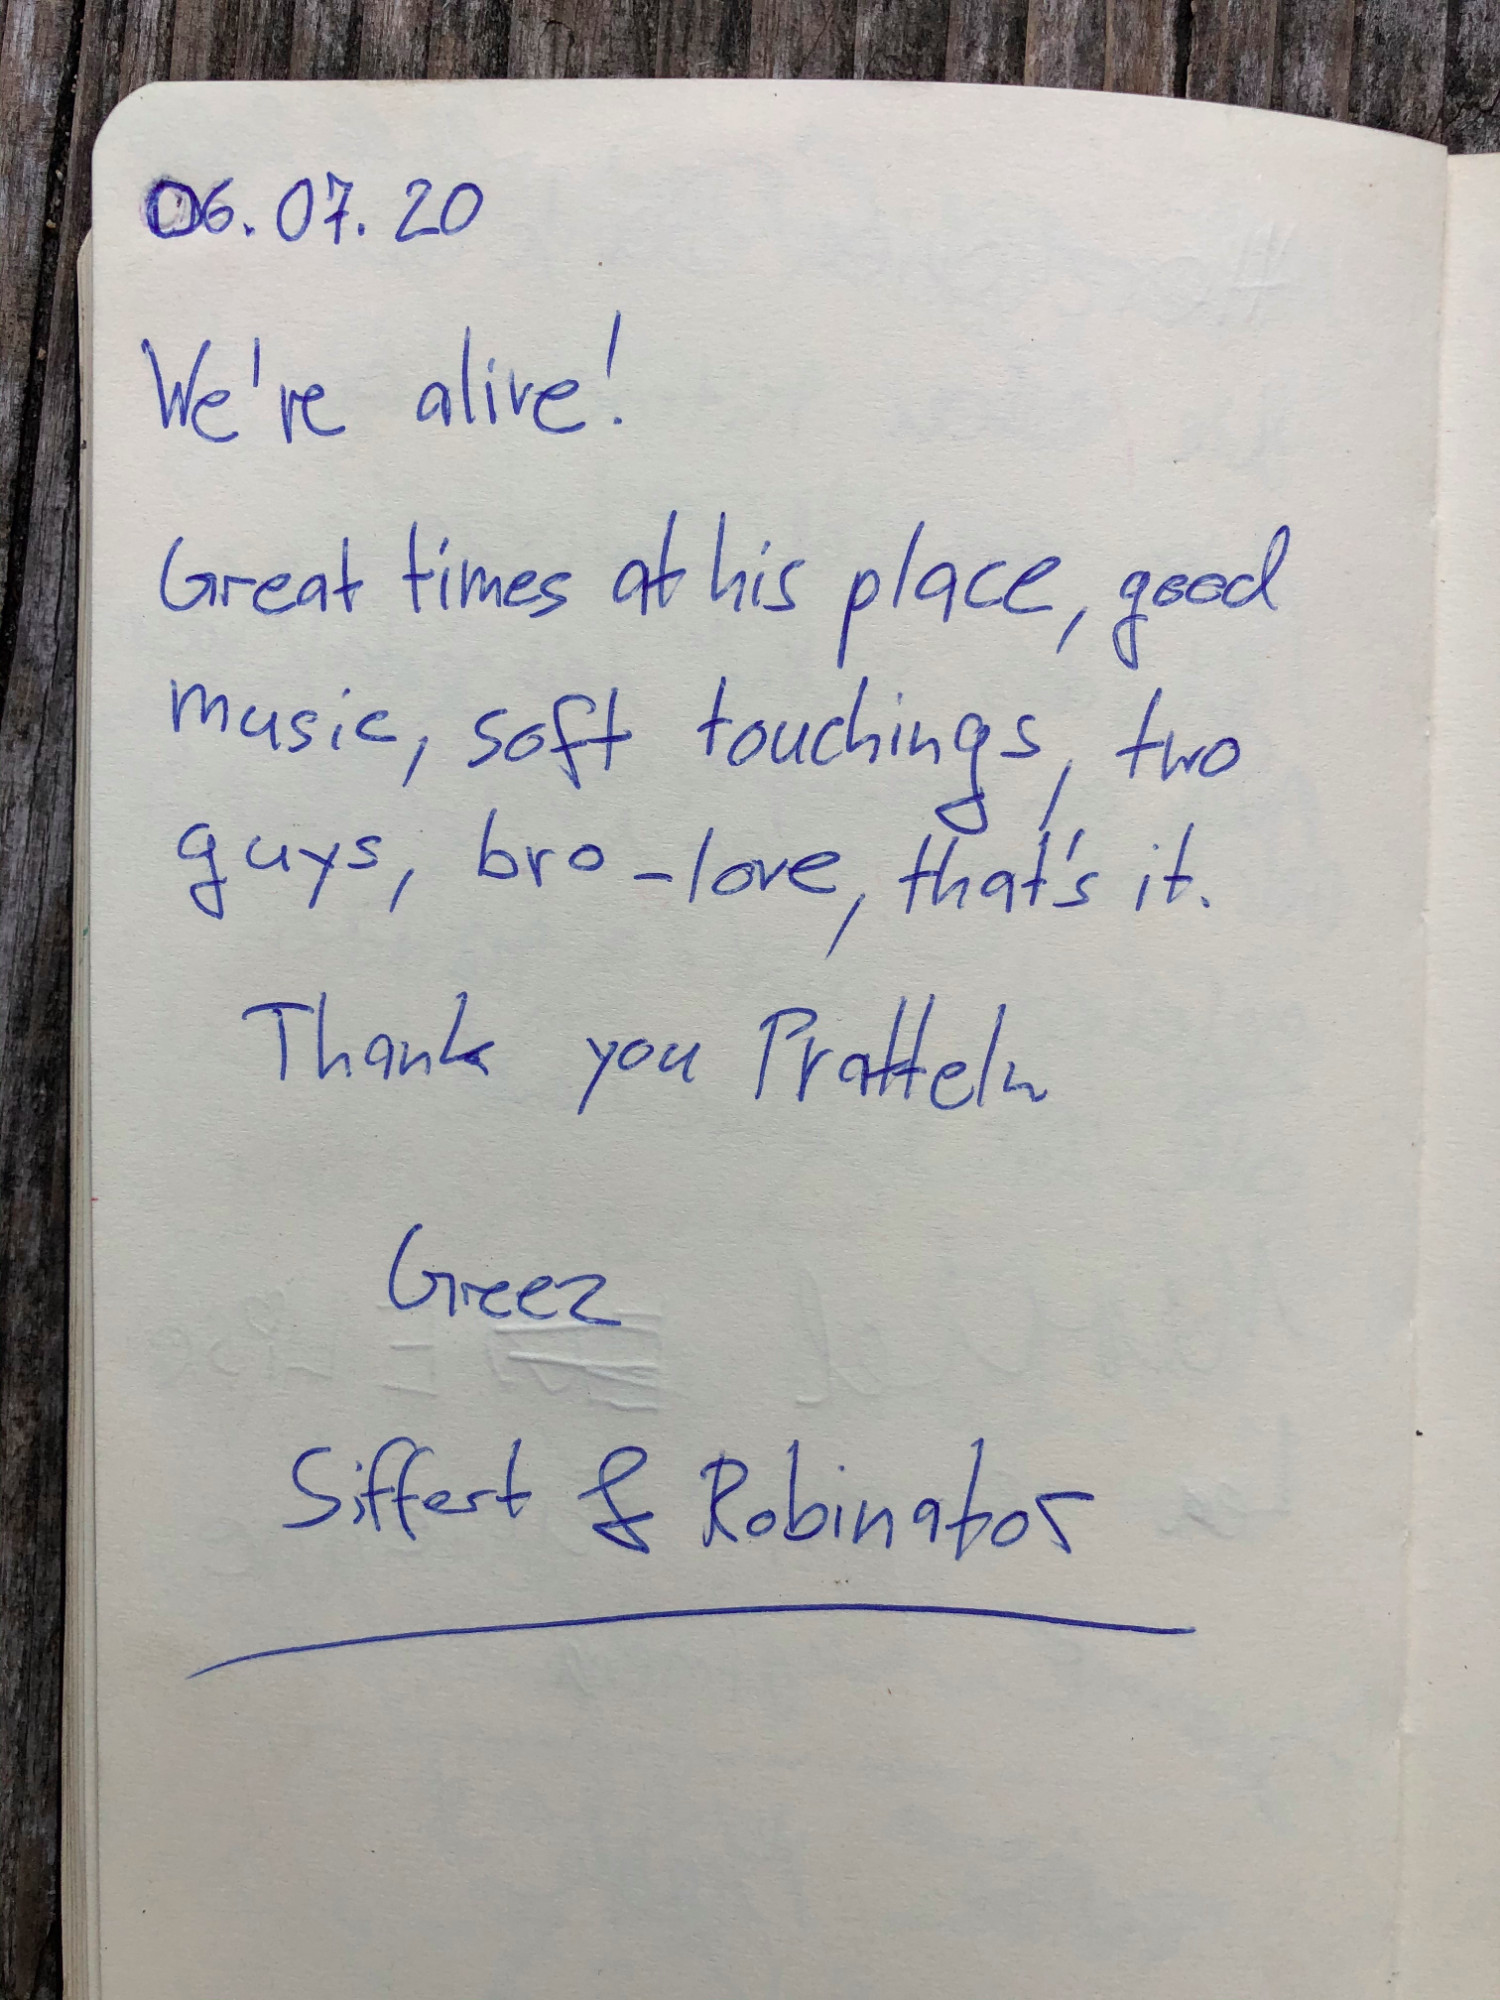 06.07.20
We're alive!
Great times at his place, good
music, soft touchings, two
guys, bro-love, that's it.
Thank you Pratteln
Greez
Siffert & Robinator